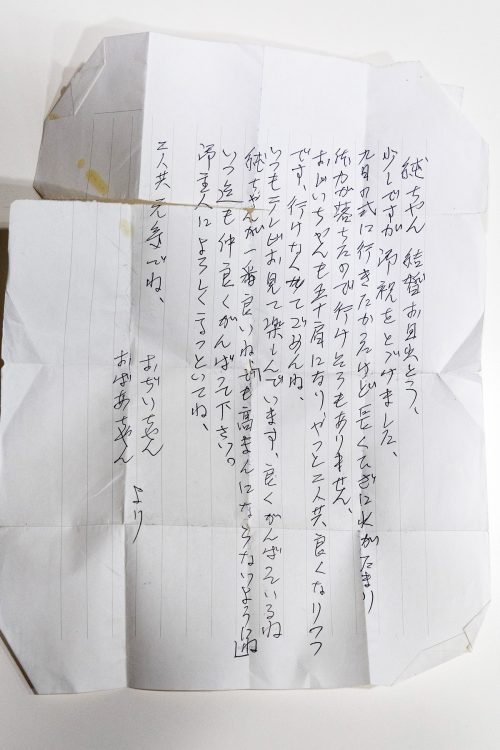 純ちゃん 結婚お目出とう、
少しですが御祝をとどけました、
九月の式に行きたかったけど長くひざに水がたまり
体力が落ちたので行けそうもありません、
おじいちゃんも五十肩になりやっと二人共良くなりつつ
です、行けなくてごめんね、
いつもテレビお見て楽しんでいます、良くがんばっているね
純ちゃんが一番良いね「でも高まんにならないようにね」
いつ迄も仲良くがんばって下さい。
御主人によろしく言っといてね、
二人共元気でね、
おぢいちゃん
おばあちゃん より